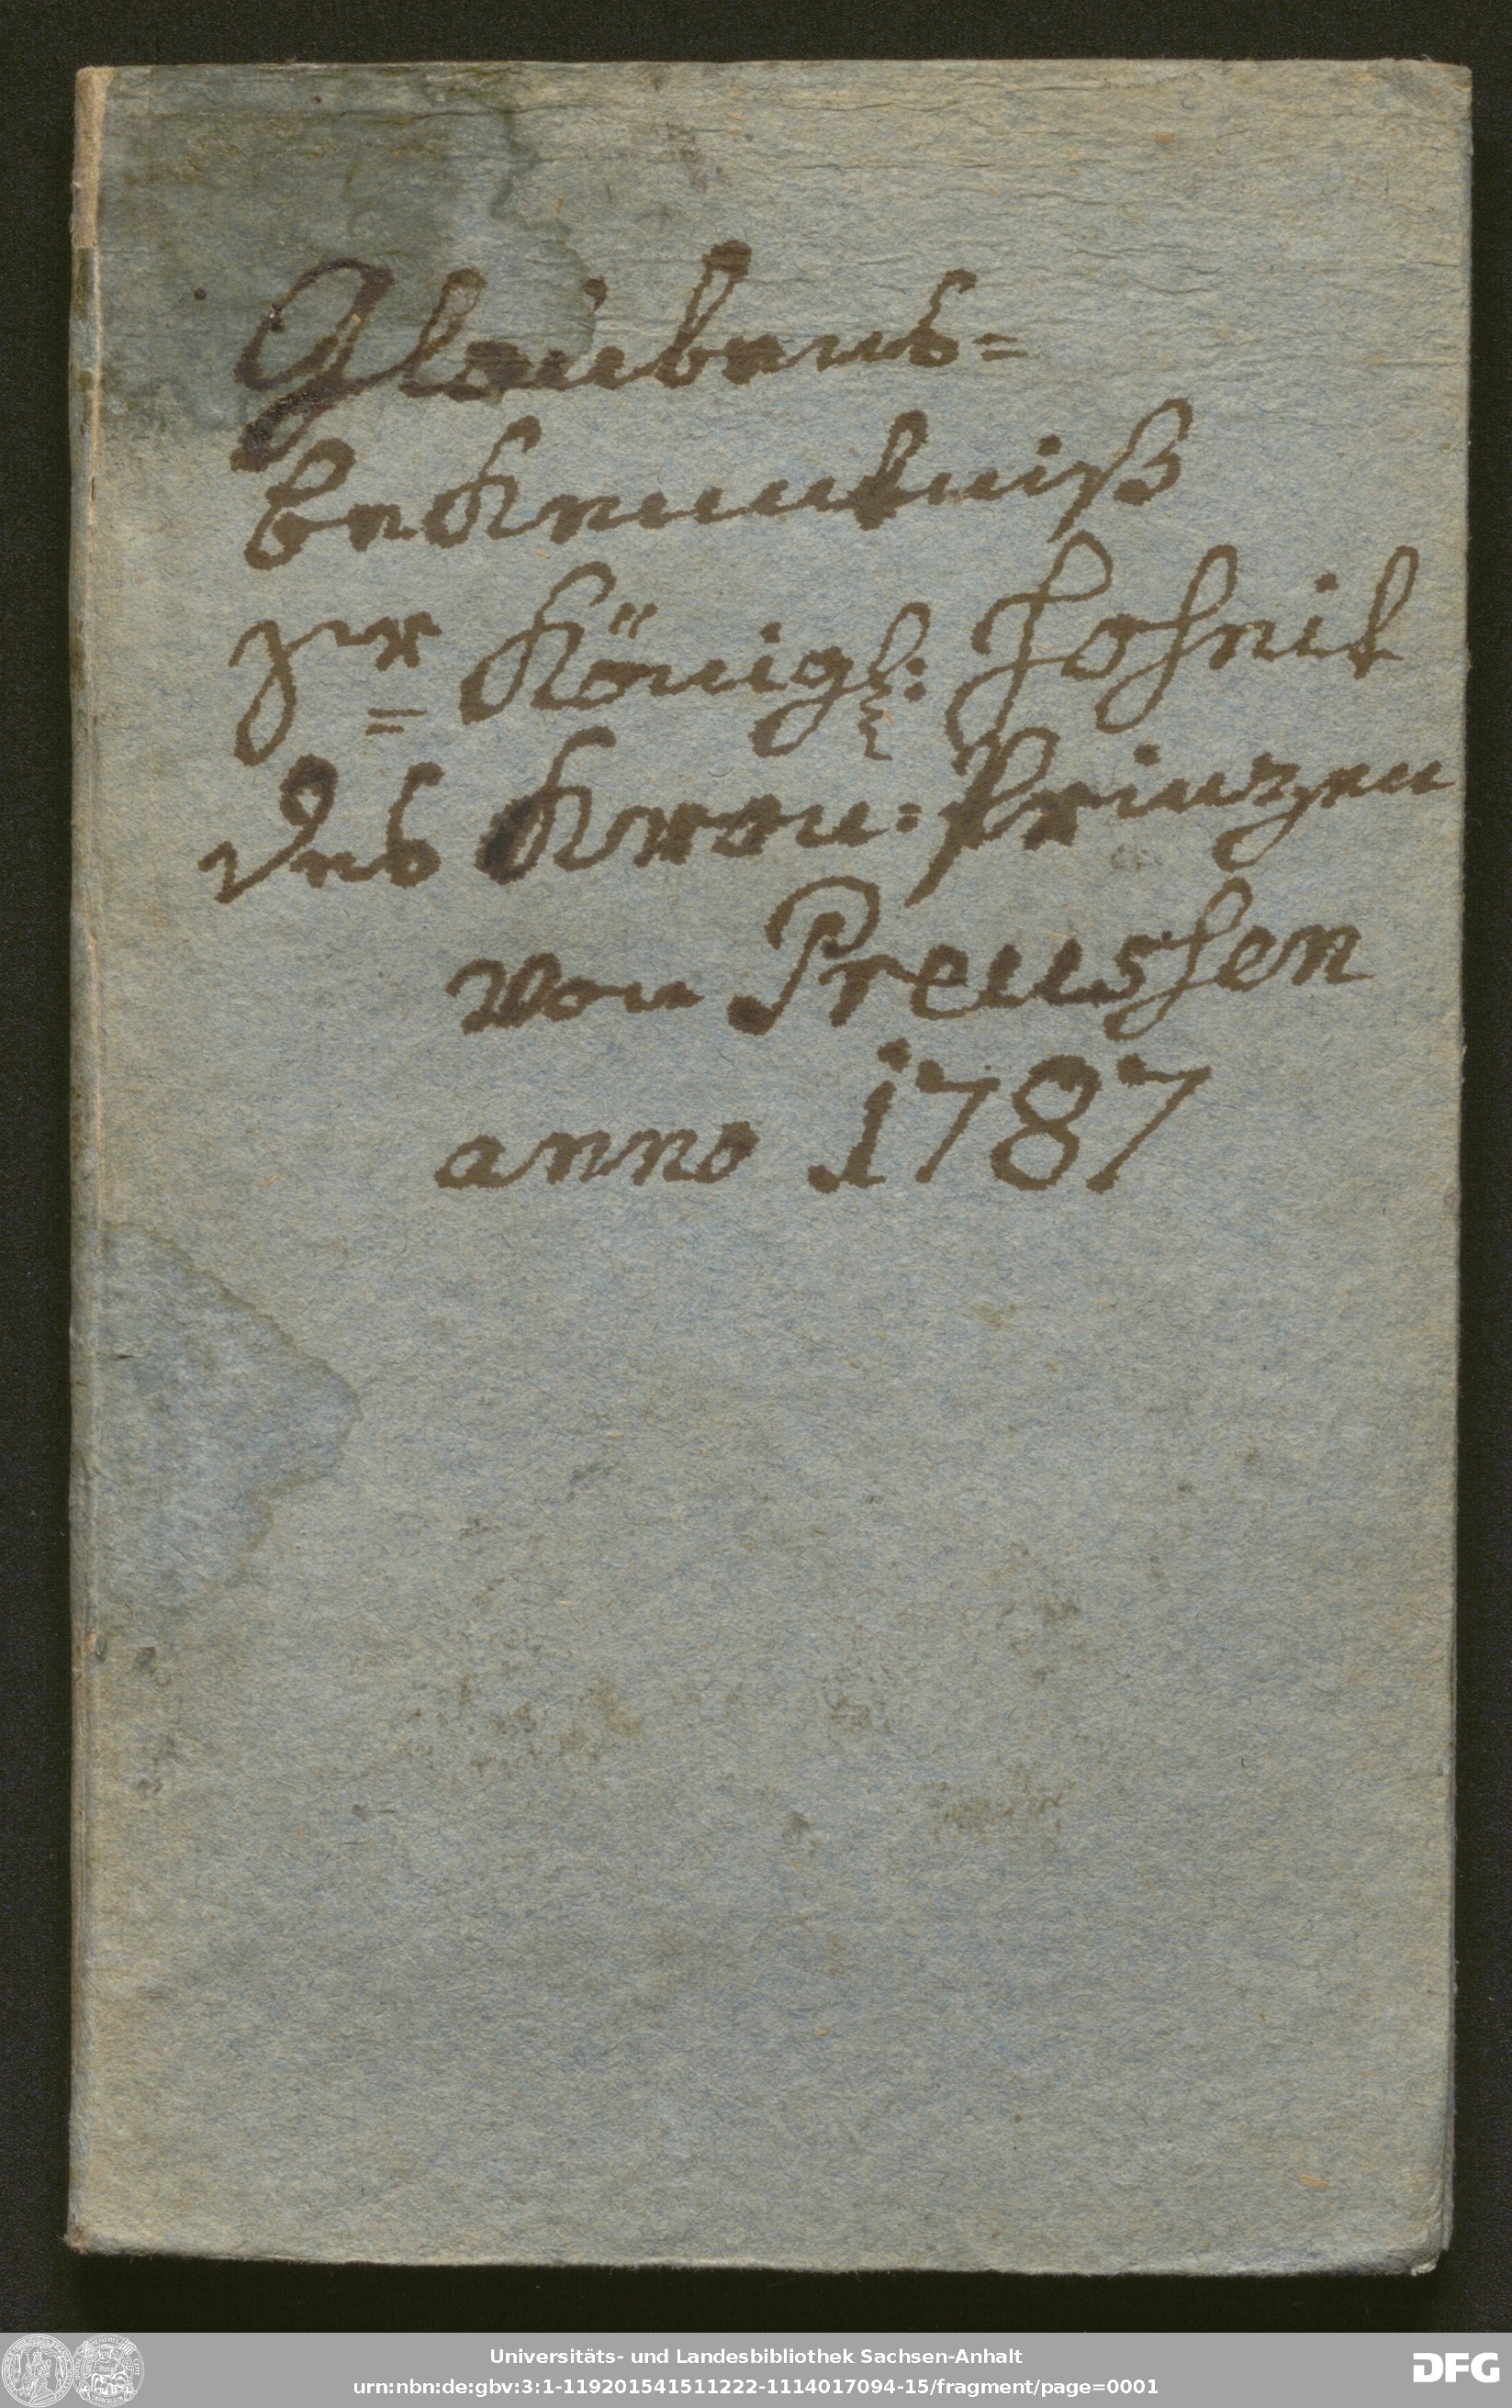 Glaubens=
bekenntniß
Sr Königl: Hoheit
des Kron=Printzen
von Preusßen
anno 1787
Universitäts- und Landesbibliothek Sachsen-Anhalt
urn:nbn:de:gbv:3:1-119201541511222-1114017094-15/fragment/page=0001
DFG